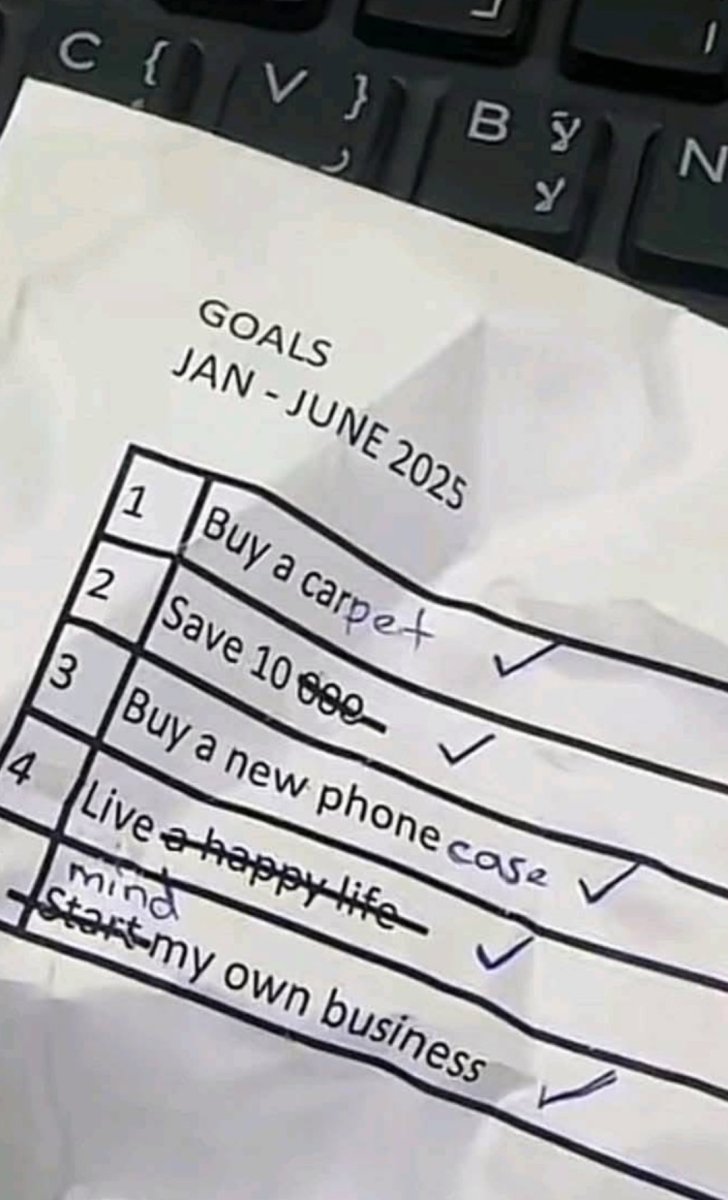 C {
V }
B لآ
لا
N
GOALS
JAN - JUNE 2025
1 Buy a carpet ✓
2 Save 10 000 ✓
3 Buy a new phone case ✓
4 Live a happy life ✓
mind
Start my own business ✓